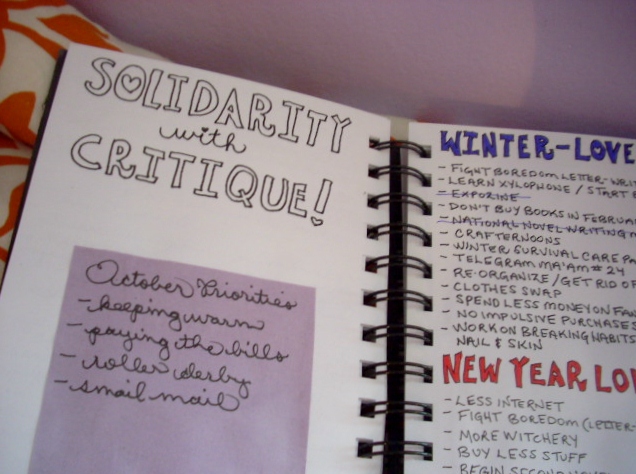 SOLIDARITY
with
CRITIQUE!
October Priorities
- keeping warm
- paying the bills
- roller derby
- snail mail
WINTER-LOVE
- FIGHT BOREDOM LETTER-WRIT
- LEARN XYLOPHONE / START
- EXPOZINE
- DON'T BUY BOOKS IN FEBRUA
- NATIONAL NOVEL WRITING M
- CRAFTERNOONS
- WINTER SURVIVAL CARE PA
- TELEGRAM MA'AM #24
- RE-ORGANIZE / GET RID OF
- CLOTHES SWAP
- SPEND LESS MONEY ON
- NO IMPULSIVE PURCHASES
- WORK ON BREAKING HABITS
NAIL & SKIN
NEW YEAR LO
- LESS INTERNET
- FIGHT BOREDOM (LETTER-
- MORE WITCHERY
- BUY LESS STUFF
- BEGIN